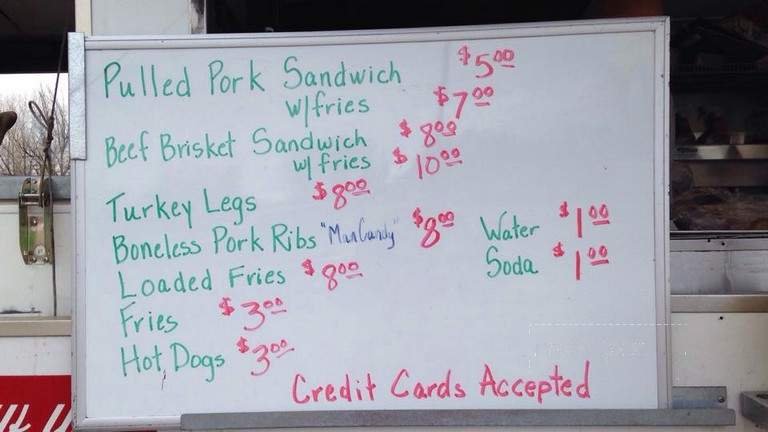 Pulled Pork Sandwich $5.00
w/fries $7.00
Beef Brisket Sandwich $8.00
w/fries $10.00
Turkey Legs $8.00
Boneless Pork Ribs "ManCandy" $8.00
Water $1.00
Loaded Fries $8.00
Soda $1.00
Fries $3.00
Hot Dogs $3.00
Credit Cards Accepted